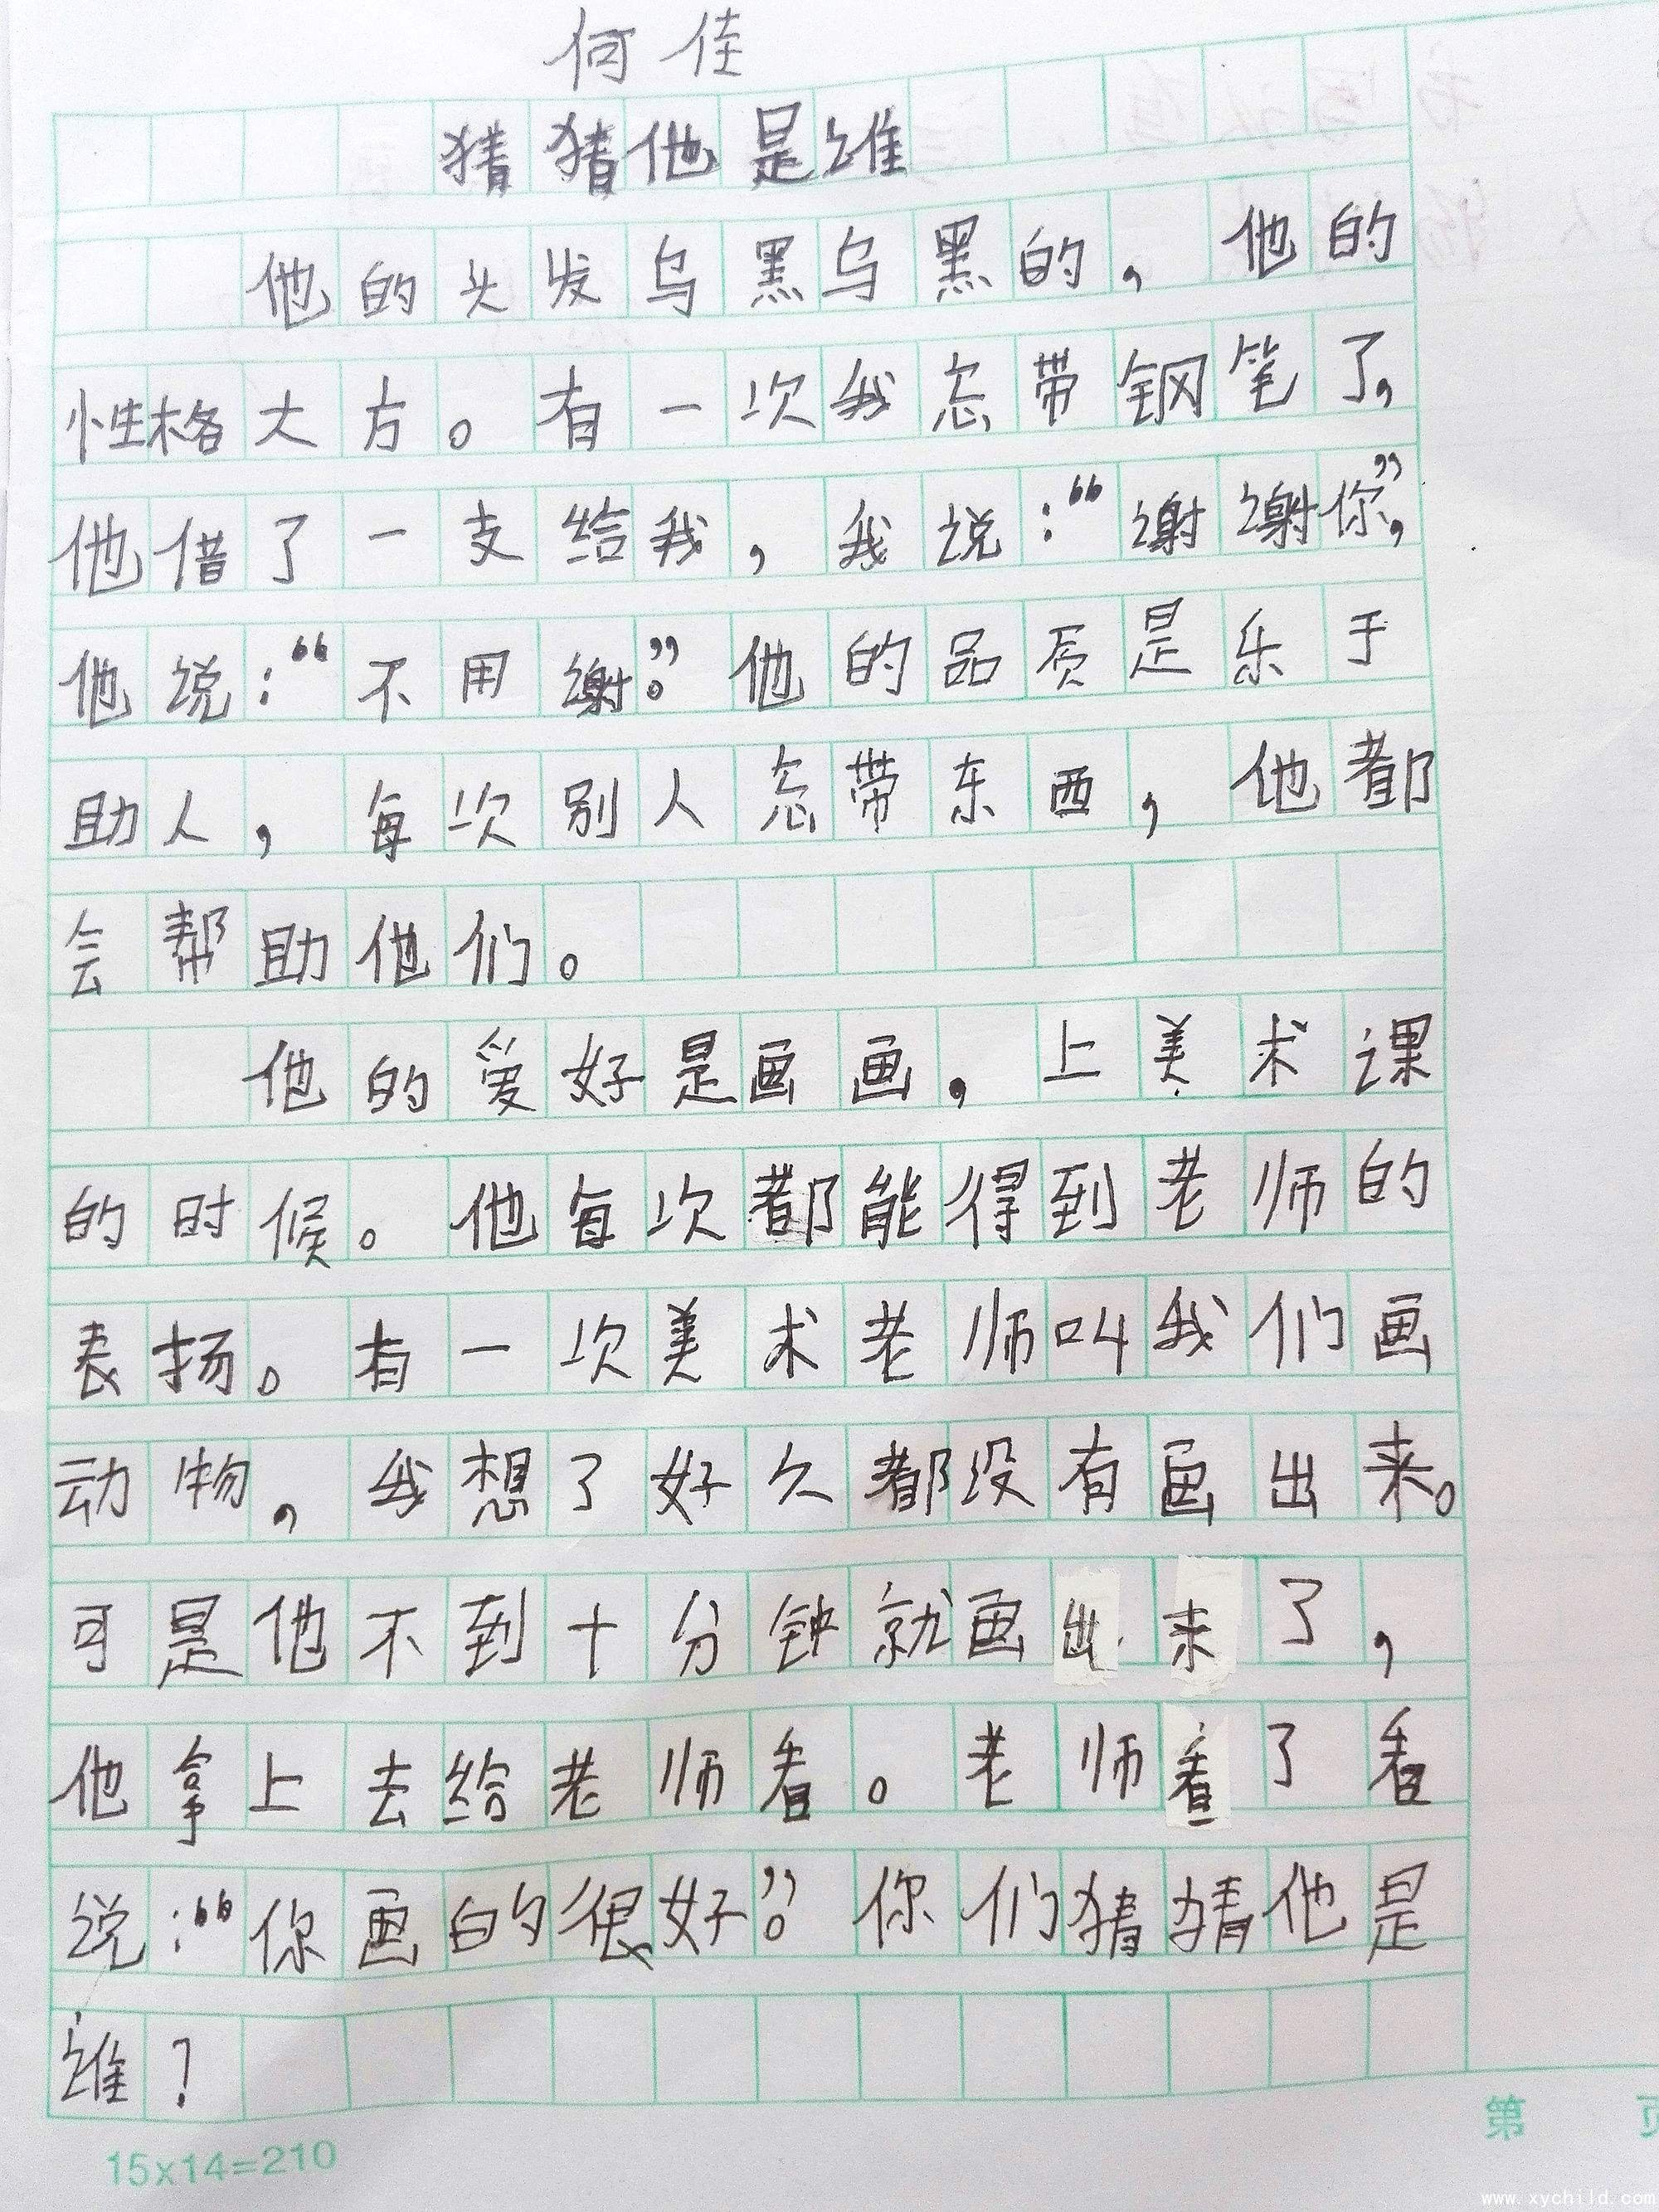 何佳
猜猜他是谁
他的头发乌黑乌黑的，他的
性格大方。有一次我忘带钢笔了，
他借了一支给我，我说：“谢谢你”，
他说：“不用谢。”他的品质是乐于
助人，每次别人忘带东西，他都
会帮助他们。
他的爱好是画画，上美术课
的时候。他每次都能得到老师的
表扬。有一次美术老师叫我们画
动物，我想了好久都没有画出来。
可是他不到十分钟就画出来了，
他拿上去给老师看。老师看了看
说：“你画的很好”。你们猜猜他是
谁？
15x14=210
第 页
www.xychild.com